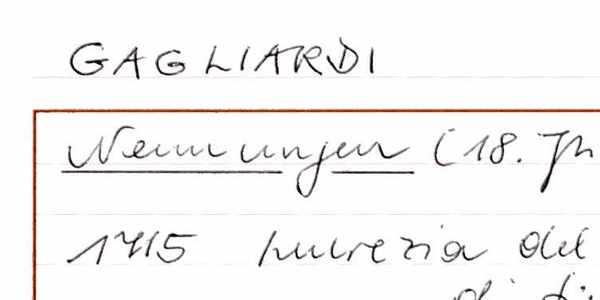 GAGLIARDI
Nennungen (18. Jh
1715 Lucrezia del
di